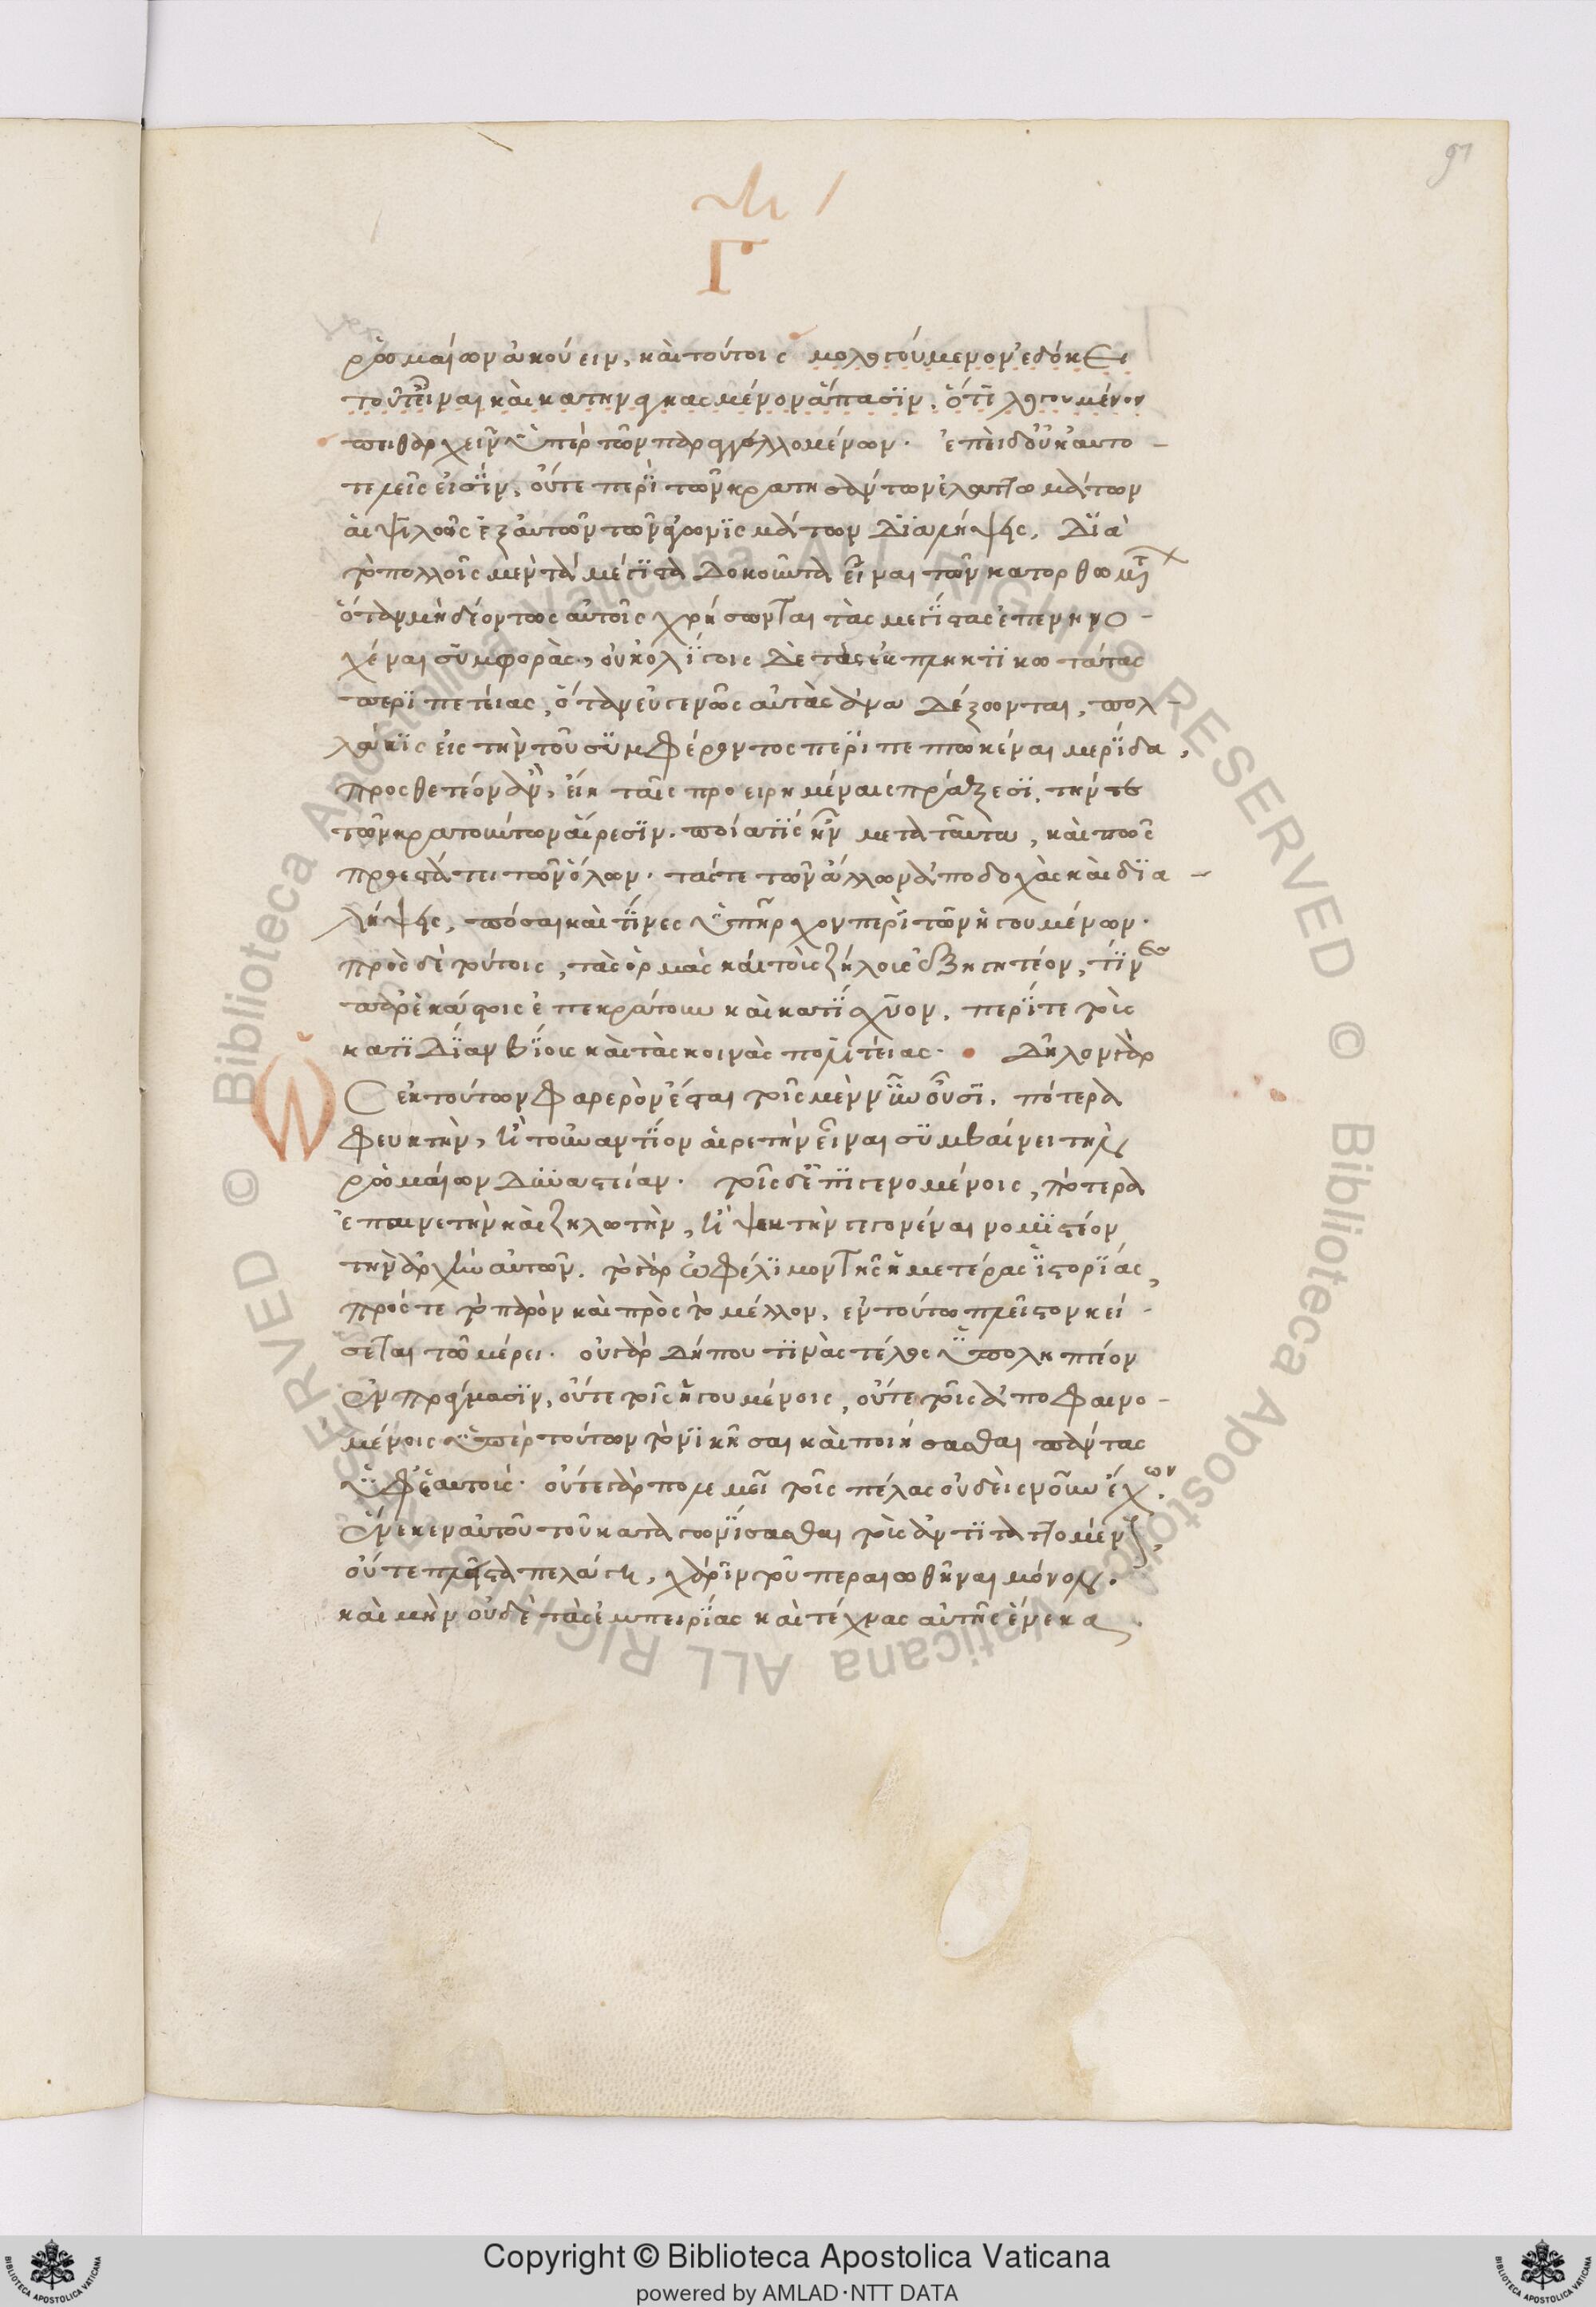 ῥωμαίων ἀκούειν, καὶ τούτοις μολογούμενον ἐδόκει
τοῦτεῖναι καὶ κατηναγκασμένον ἅπασϊν. ὅτι
πειθαρχεῖν ὑπὲρ τῶν παραγγελλομένων. ἐπεὶ δοὐκ αὐτο-
τελεῖς εἰσϊν, οὔτε περϊ τῶν κρατησάντων ἐλαττωμάτων
αἱ ψϊλοῦς ἐξ αὐτῶν τῶν ἀγωνϊσμάτων δϊαλήψεις, δϊὰ
τὸ πολλοῖς μὲν τὰ μέγϊστα δοκοῦντα εἶναι τῶν κατορθωμτ
ὅταν μὴ δεόντως αὐτοῖς χρήσωνται τὰς μεγϊστας ἐπενηνο-
χέναι συμφορὰς, οὐκ ὀλϊγοις δὲ τὰς ἐκπληκτϊκωτάτας
περϊπετείας, ὅταν εὐγενῶς αὐτὰς ἀναδέξωνται, πολ-
λάκϊς εἰς τὴν τοῦ συμφέροντος περϊπεπτωκέναι μερϊδα,
προσθετέον ἂν, εἴη ταῖς προειρημέναις πράξεσϊ. τήν τε
τῶν κρατούντων αἵρεσϊν. ποία τϊς ἦν μετὰ ταῦτα, καὶ πῶς
προεστάτει τῶν ὅλων. τάς τε τῶν ἄλλων ἀποδοχὰς καὶ δϊα-
λήψεις, πόσαι καὶ τϊνες ὑπῆρχον περὶ τῶν ἡγουμένων.
πρὸς δὲ τούτοις, τὰς ὁρμὰς καὶ τοὺς ζήλους ἐξηγητέον, τϊνες
παρἑκάστοις ἐπεκράτουν καὶ κατϊσχυον. περϊ τε τοὺς
κατϊδϊαν βϊους καὶ τὰς κοινὰς πολϊτείας. δῆλον γὰρ
ὡς ἐκ τούτων φανερὸν ἔσται τοῖς μὲν νῦν οὖσϊ. πότερα
φευκτὴν, ἢ τοὐναντϊον αἱρετὴν εἶναι συμβαίνει τὴν
ῥωμαίων δυναστείαν. τοῖς δἐπϊγενομένοις, πότερα
ἐπαινετὴν καὶ ζηλωτὴν, ἢ ψεκτὴν γεγονέναι νομϊστέον
τὴν ἀρχὴν αὐτῶν. τὸ γὰρ ὠφέλϊμον τῆς ἡμετέρας ἱστορϊας,
πρός τε τὸ παρὸν καὶ πρὸς τὸ μέλλον, ἐν τούτω πλεῖστον κεί-
σεται τῶ μέρει. οὐ γὰρ δήπου τϊνὰς τέλος ὑποληπτέον
ἐν πράγμασϊν, οὔτε τοῖς ἡγουμένοις, οὔτε τοῖς ἀποφαινο-
μένοις ὑπὲρ τούτων τὸ νϊκῆσαι καὶ ποιήσασθαι πάντας
ὑφἑαυτοὺς. οὔτε γὰρ πολεμεῖ τοῖς πέλας οὐδεὶς νοῦν ἔχων.
ἕνεκεν αὐτοῦ τοῦ καταγωνϊσασθαι τοὺς ἀντϊταττομένους,
οὔτε πλεῖ τὰ πελάγη, χάρϊν τοῦ περαιωθῆναι μόνον.
καὶ μὴν οὐδὲ τὰς ἐμπειρϊας καὶ τέχνας αὐτῆς ἕνεκα